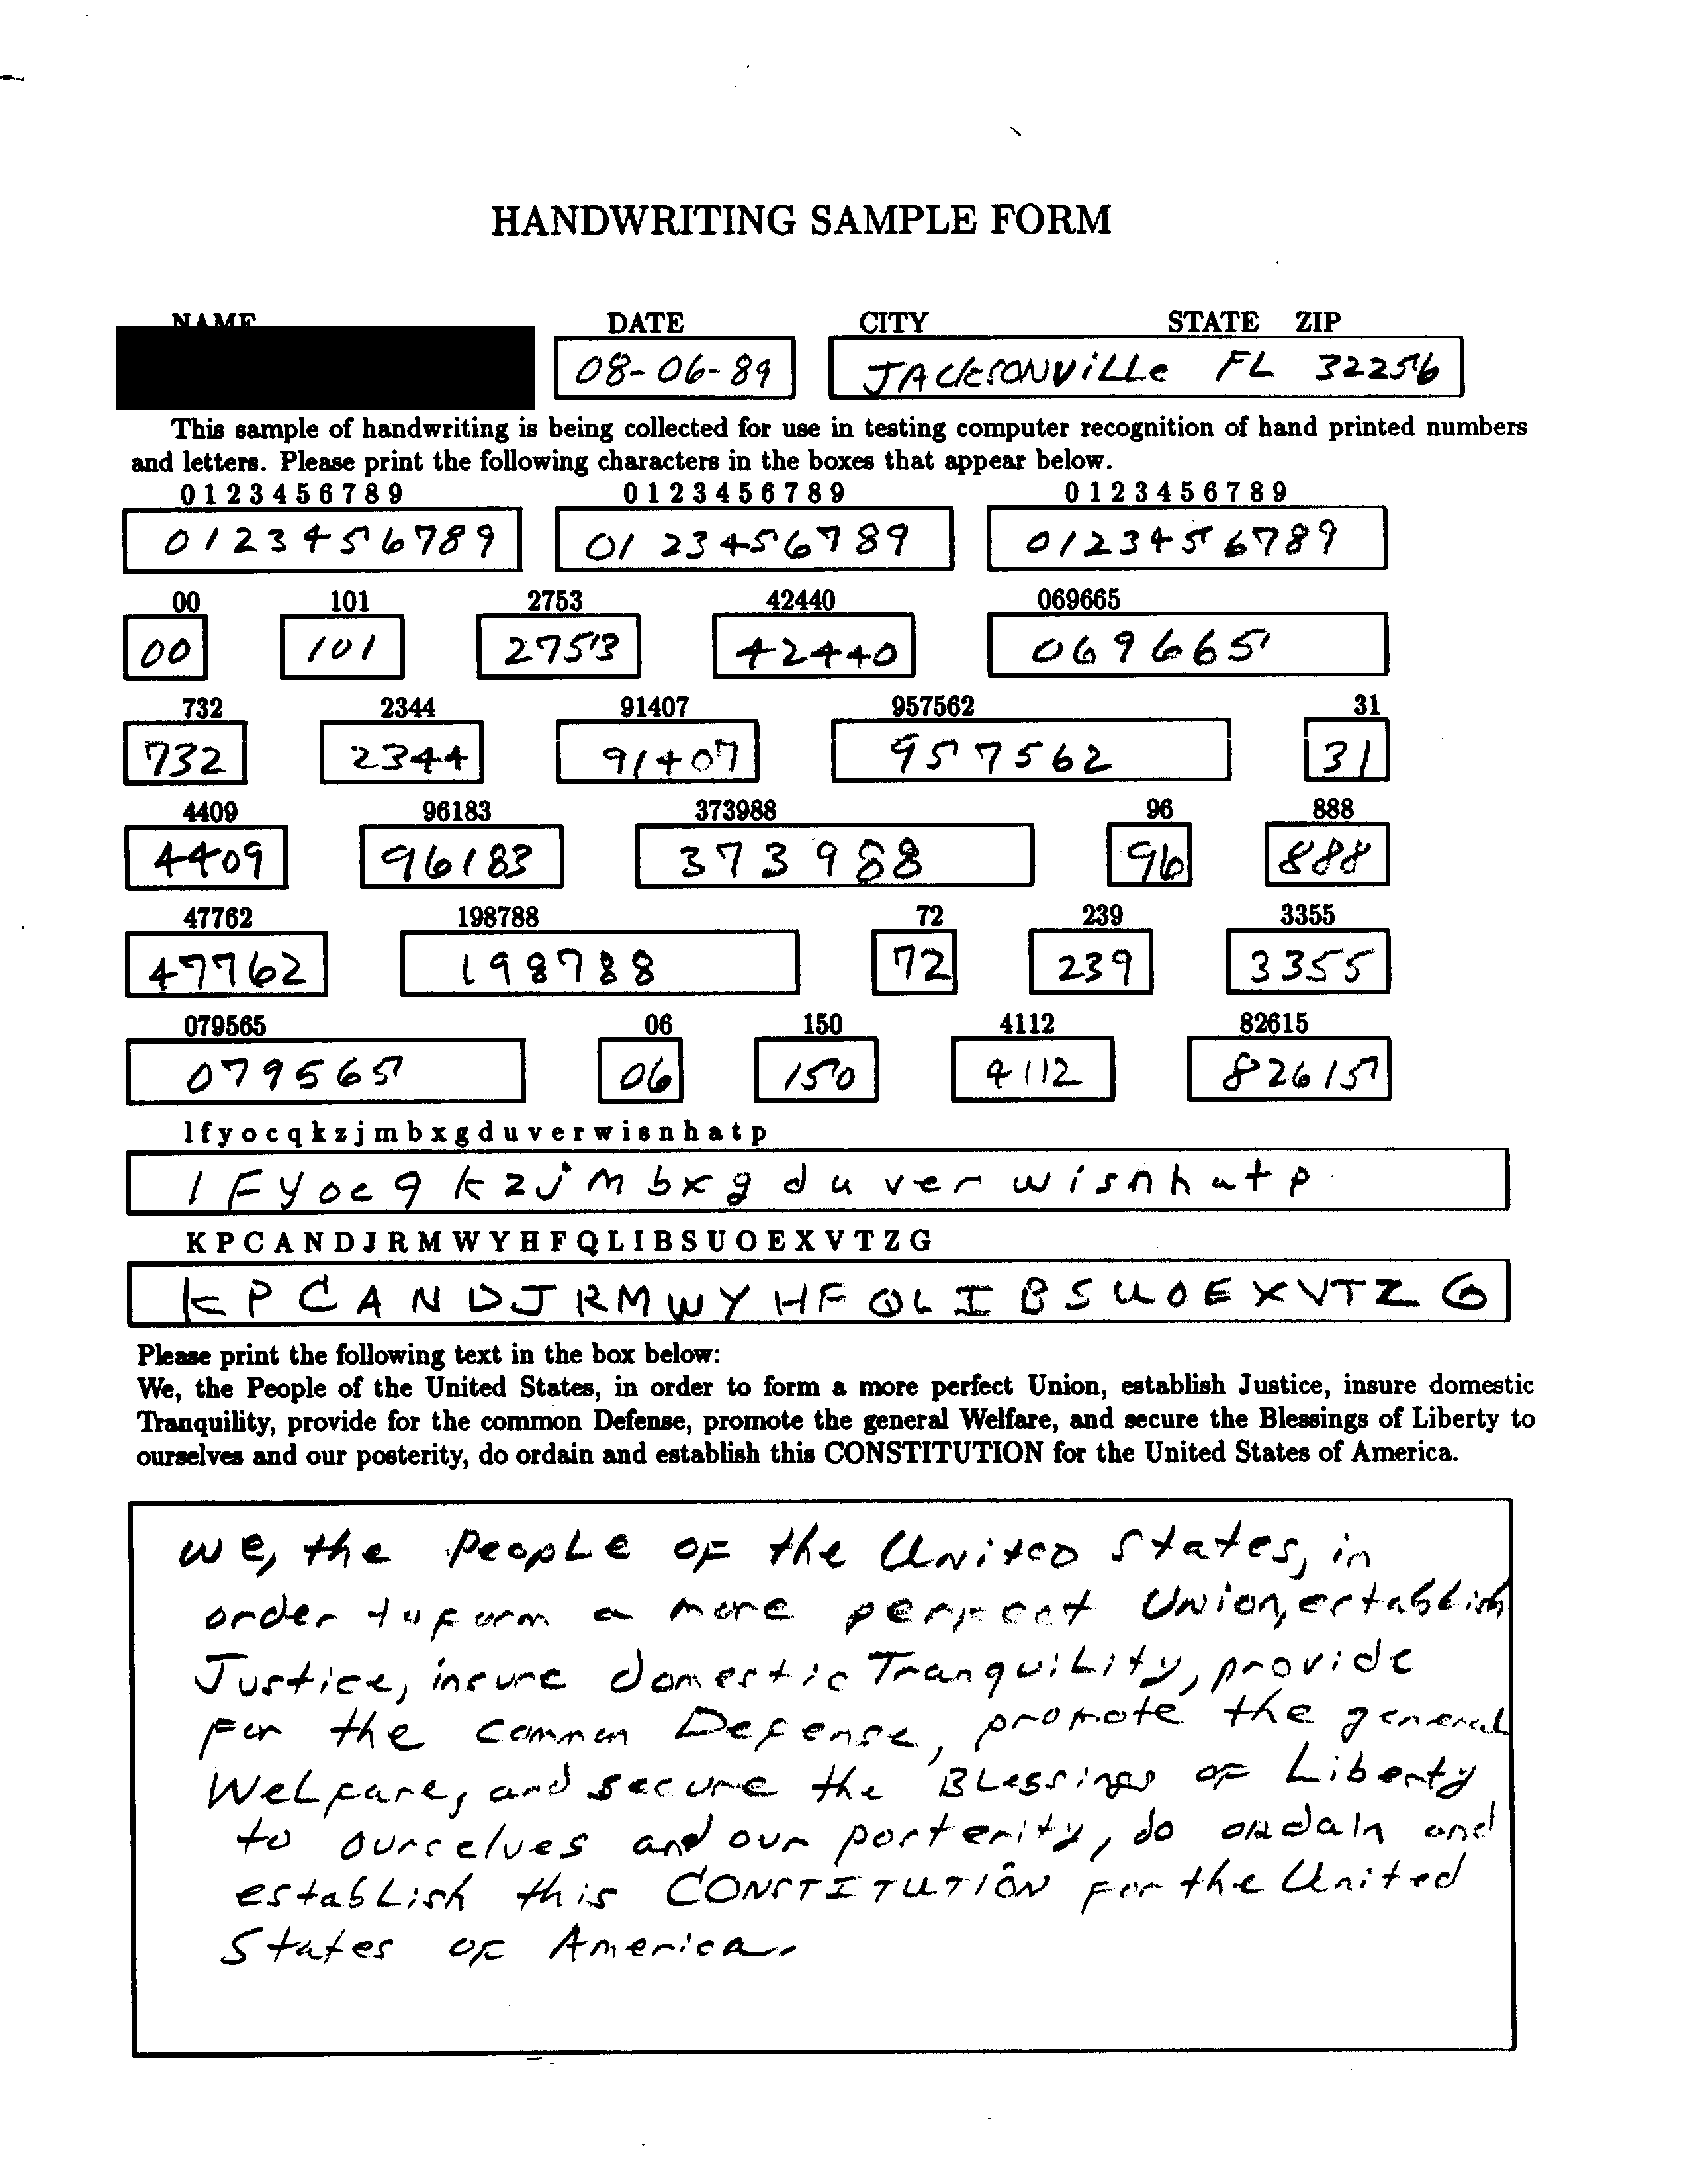 HANDWRITING SAMPLE FORM
NAME DATE CITY STATE ZIP
08-06-89 JACKSONVILLe FL 32256
This sample of handwriting is being collected for use in testing computer recognition of hand printed numbers
and letters. Please print the following characters in the boxes that appear below.
0 1 2 3 4 5 6 7 8 9 0 1 2 3 4 5 6 7 8 9 0 1 2 3 4 5 6 7 8 9
0123456789 0123456789 0123456789
00 101 2753 42440 069665
00 101 2753 42440 069665
732 2344 91407 957562 31
732 2344 91407 957562 31
4409 96183 373988 96 888
4409 96183 373988 96 888
47762 198788 72 239 3355
47762 198788 72 239 3355
079565 06 150 4112 82615
079565 06 150 4112 82615
l f y o c q k z j m b x g d u v e r w i s n h a t p
l F y o c q k z j m b x g d u v e r w i s n h a t p
K P C A N D J R M W Y H F Q L I B S U O E X V T Z G
K P C A N D J R M W Y H F Q L I B S U O E X V T Z G
Please print the following text in the box below:
We, the People of the United States, in order to form a more perfect Union, establish Justice, insure domestic
Tranquility, provide for the common Defense, promote the general Welfare, and secure the Blessings of Liberty to
ourselves and our posterity, do ordain and establish this CONSTITUTION for the United States of America.
We, the People of the United States, in
order to form a more perfect Union, establish
Justice, insure domestic Tranquility, provide
for the common Defense, promote the general
Welfare, and secure the Blessings of Liberty
to ourselves and our posterity, do ordain and
establish this CONSTITUTION for the United
States of America.